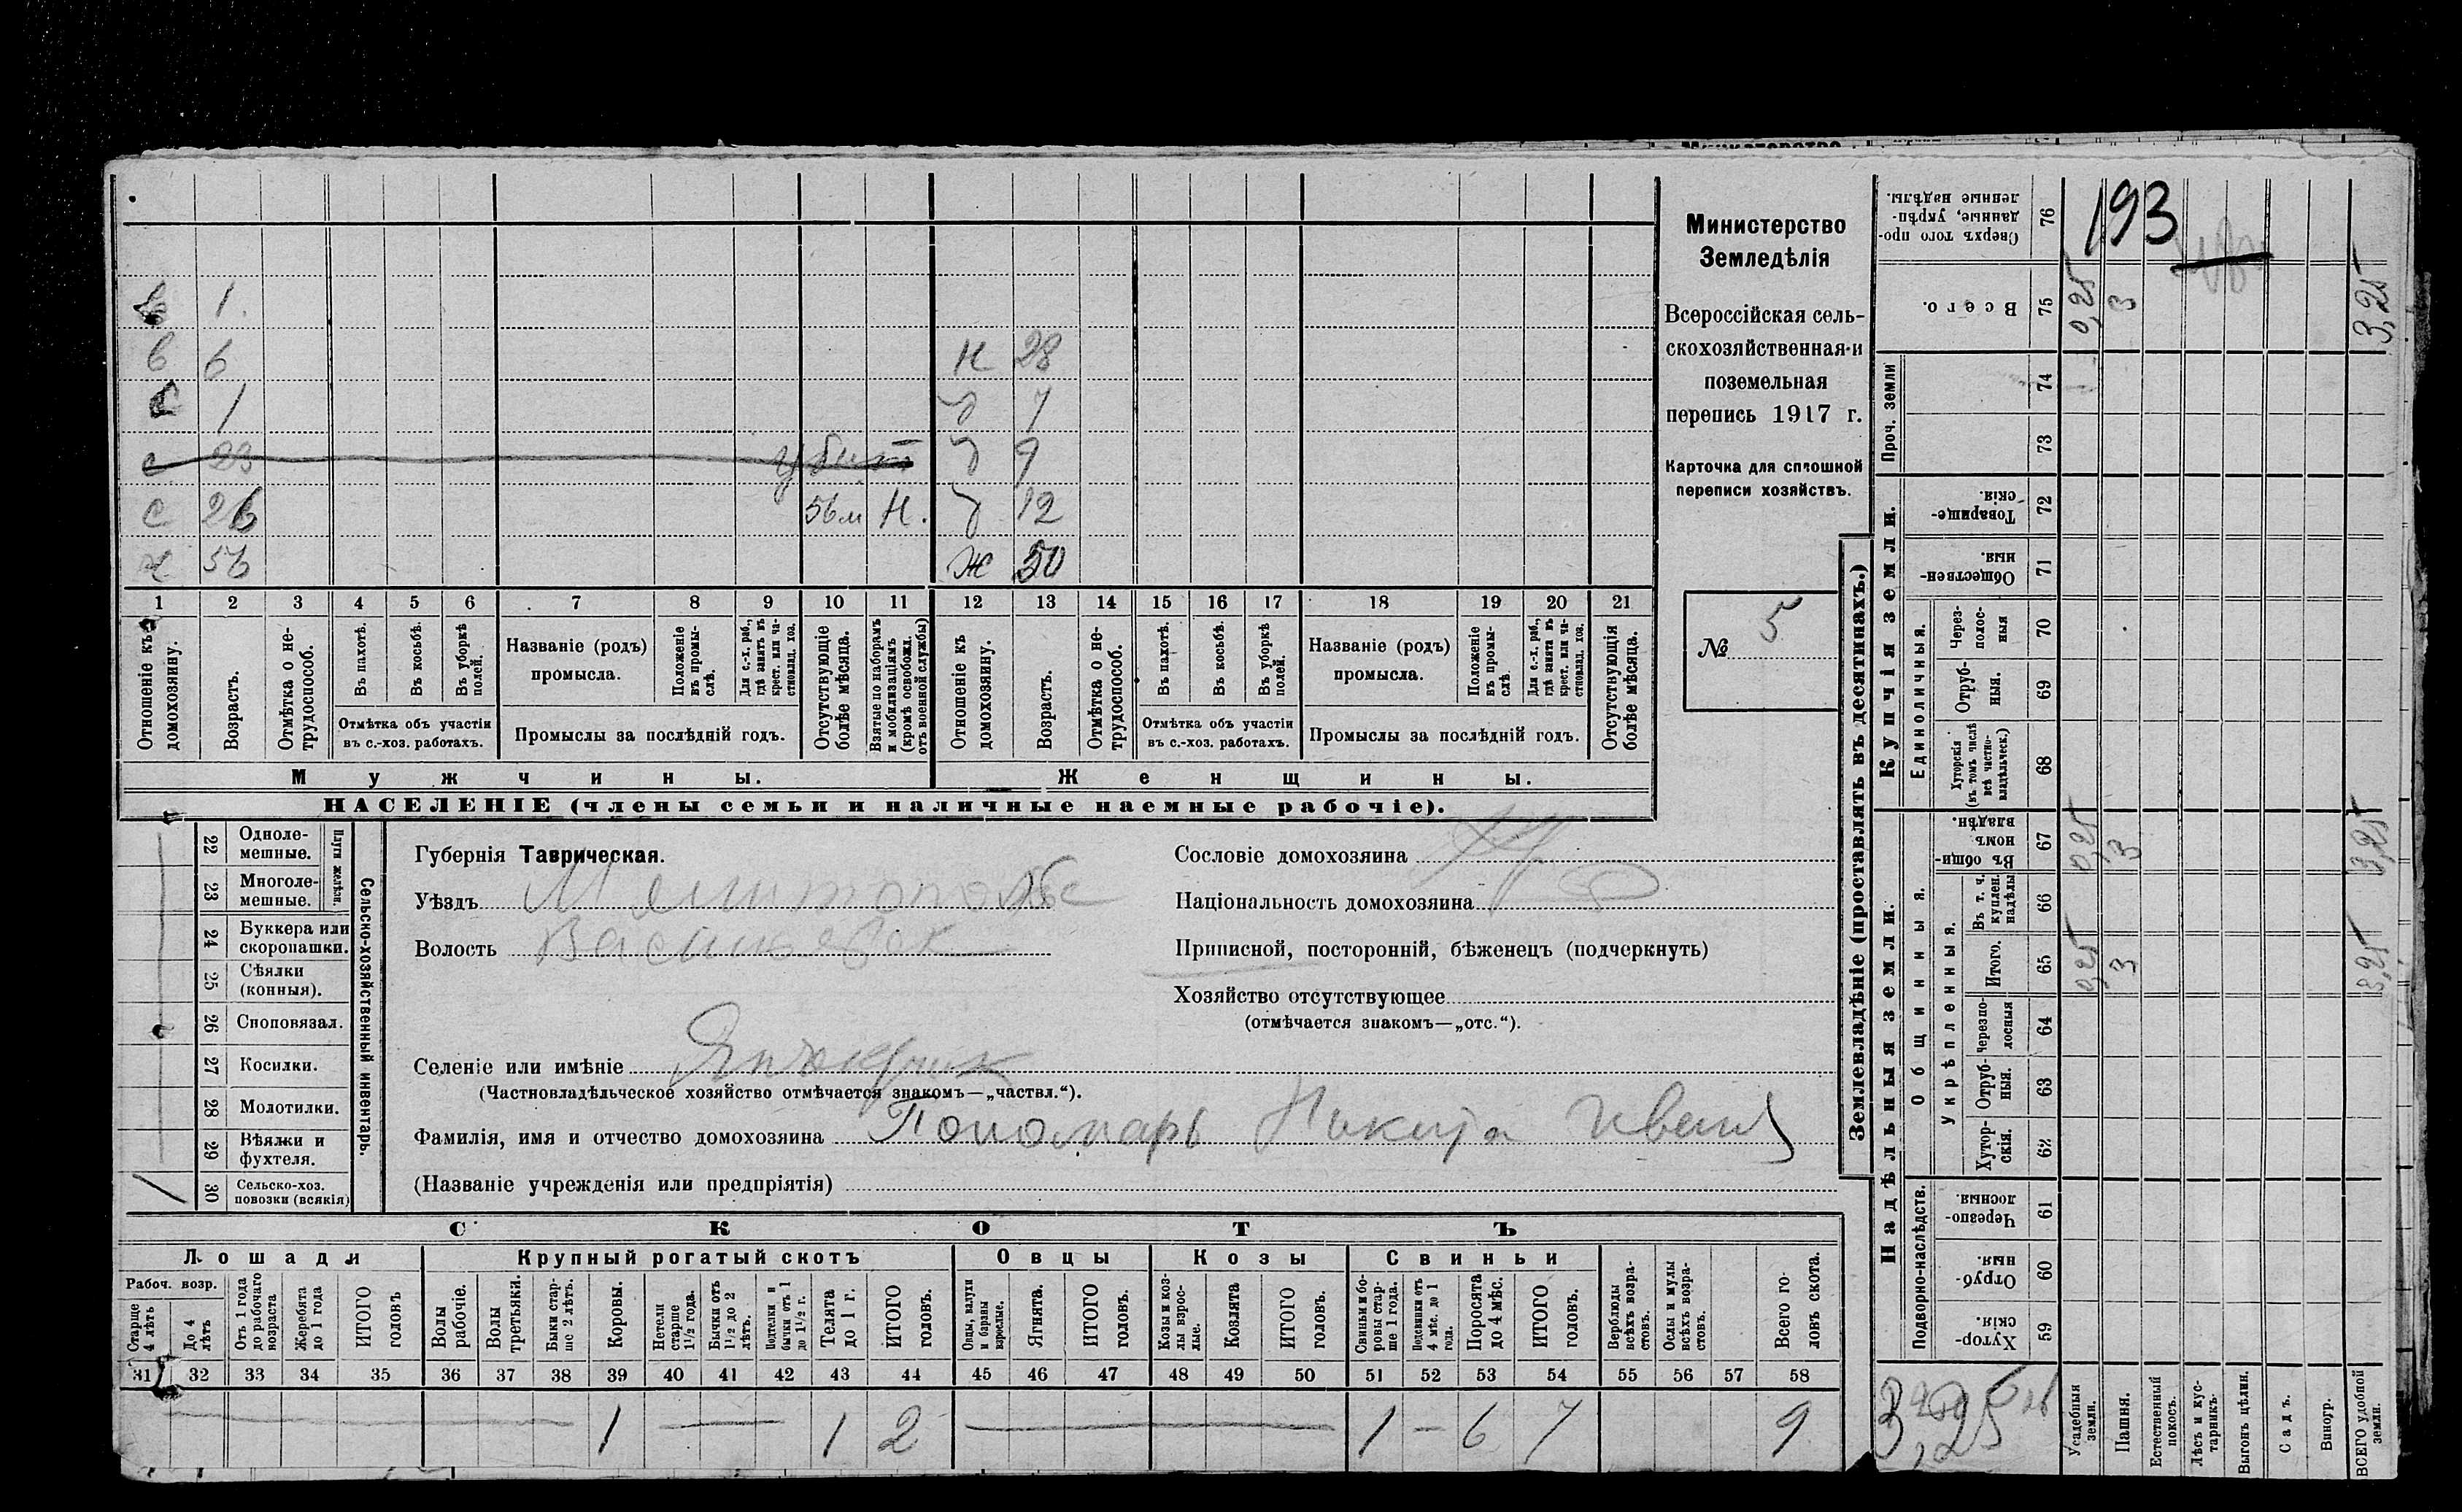 Министерство
Земледѣлія
Всероссійская сель-
скохозяйственная и
поземельная
перепись 1917 г.
Карточка для сплошной
переписи хозяйствъ.
№ 5
193
в 1
в 6 н 28
с 1 д 7
с 23 убит д 9
с 26 56м н. д 12
х 56 ж 50
1 2 3 4 5 6 7 8 9 10 11 12 13 14 15 16 17 18 19 20 21
Отношеніе къ домохозяину.
Возрастъ.
Отмѣтка о не-трудоспособ.
Въ пахотѣ.
Въ косьбѣ.
Въ уборкѣ полей.
Отмѣтка объ участіи въ с.-хоз. работахъ.
Названіе (родъ) промысла.
Положеніе въ промы-слѣ.
Для с.-х. раб., гдѣ занятъ въ крест. или ча-стновлад. хоз.
Промыслы за послѣдній годъ.
Отсутствующіе болѣе мѣсяца.
Взятые по наборамъ и мобилизаціямъ (кромѣ освобожд. отъ военной службы)
Отношеніе къ домохозяину.
Возрастъ.
Отмѣтка о не-трудоспособ.
Въ пахотѣ.
Въ косьбѣ.
Въ уборкѣ полей.
Отмѣтка объ участіи въ с.-хоз. работахъ.
Названіе (родъ) промысла.
Положеніе въ промы-слѣ.
Для с.-х. раб., гдѣ занята въ крест. или ча-стновлад. хоз.
Промыслы за послѣдній годъ.
Отсутствующія болѣе мѣсяца.
Мужчины. Женщины.
НАСЕЛЕНІЕ (члены семьи и наличные наемные рабочіе).
22 Одноле-мешные.
23 Многоле-мешные.
Плуги желѣзн.
24 Буккера или скоропашки.
25 Сѣялки (конныя).
26 Сноповязал.
27 Косилки.
28 Молотилки.
29 Вѣялки и фухтеля.
30 Сельско-хоз. повозки (всякія) 1
Сельско-хозяйственный инвентарь.
Губернія Таврическая.
Уѣздъ Мелитопольс
Волость Васильевск
Селеніе или имѣніе Янчекрак
(Частновладѣльческое хозяйство отмѣчается знакомъ—„частвл.“).
Фамилія, имя и отчество домохозяина Пономарь Никита Иван
(Названіе учрежденія или предпріятія)
Сословіе домохозяина
Національность домохозяина
Приписной, посторонній, бѣженецъ (подчеркнуть)
Хозяйство отсутствующее
(отмѣчается знакомъ—„отс.“).
СКОТЪ
Лошади Крупный рогатый скотъ Овцы Козы Свиньи
Рабоч. возр.
Старше 4 лѣтъ
До 4 лѣтъ
Отъ 1 года до рабочаго возраста
Жеребята до 1 года
ИТОГО головъ
Волы рабочіе.
Волы третьяки.
Быки стар-ше 2 лѣтъ.
Коровы.
Нетели старше 1½ года.
Бычки отъ 1½ до 2 лѣтъ.
Подтелки и бычки отъ 1 до 1½ г.
Телята до 1 г.
ИТОГО головъ.
Овцы, валухи и бараны взрослые.
Ягнята.
ИТОГО головъ.
Козы и коз-лы взрос-лые.
Козлята
ИТОГО головъ.
Свиньи и бо-ровы стар-ше 1 года.
Подсвинки отъ 4 мѣс. до 1 года.
Поросята до 4 мѣс.
ИТОГО головъ.
Верблюды всѣхъ возра-стовъ.
Ослы и мулы всѣхъ возра-стовъ.
Всего го-ловъ скота.
31 32 33 34 35 36 37 38 39 40 41 42 43 44 45 46 47 48 49 50 51 52 53 54 55 56 57 58
1 — 1 2 — 1 — 6 7 9
Землевладѣніе (проставлять въ десятинахъ.)
Сверхъ того про-данные, укрѣп-ленные надѣлы. 76
Всего. 75 0,25 3 3,25
Проч. земли 74 73
Купчія земли.
Товарище-скія. 72
Обществен-ныя. 71
Единоличныя.
Через-полос-ныя 70
Отруб-ныя. 69
Хуторскія (въ томъ числѣ всѣ частно-владѣльческ.) 68
Надѣльныя земли.
Общинныя.
Въ общи-номъ владѣн. 67 0,25 3 3,25
Укрѣпленныя.
Въ т. ч. куплен. надѣлы 66
Итого. 65 0,25 3 3,25
Черезпо-лосныя 64
Отруб-ныя. 63
Хутор-скія. 62
Подворно-наслѣдств.
Черезпо-лосныя. 61
Отруб-ныя. 60
Хутор-скія. 59
3,25
Усадебныя земли.
Пашня.
Естественный покосъ.
Лѣсъ и кус-тарникъ.
Выгонъ цѣлин.
Садъ.
Виногр.
ВСЕГО удобной земли.